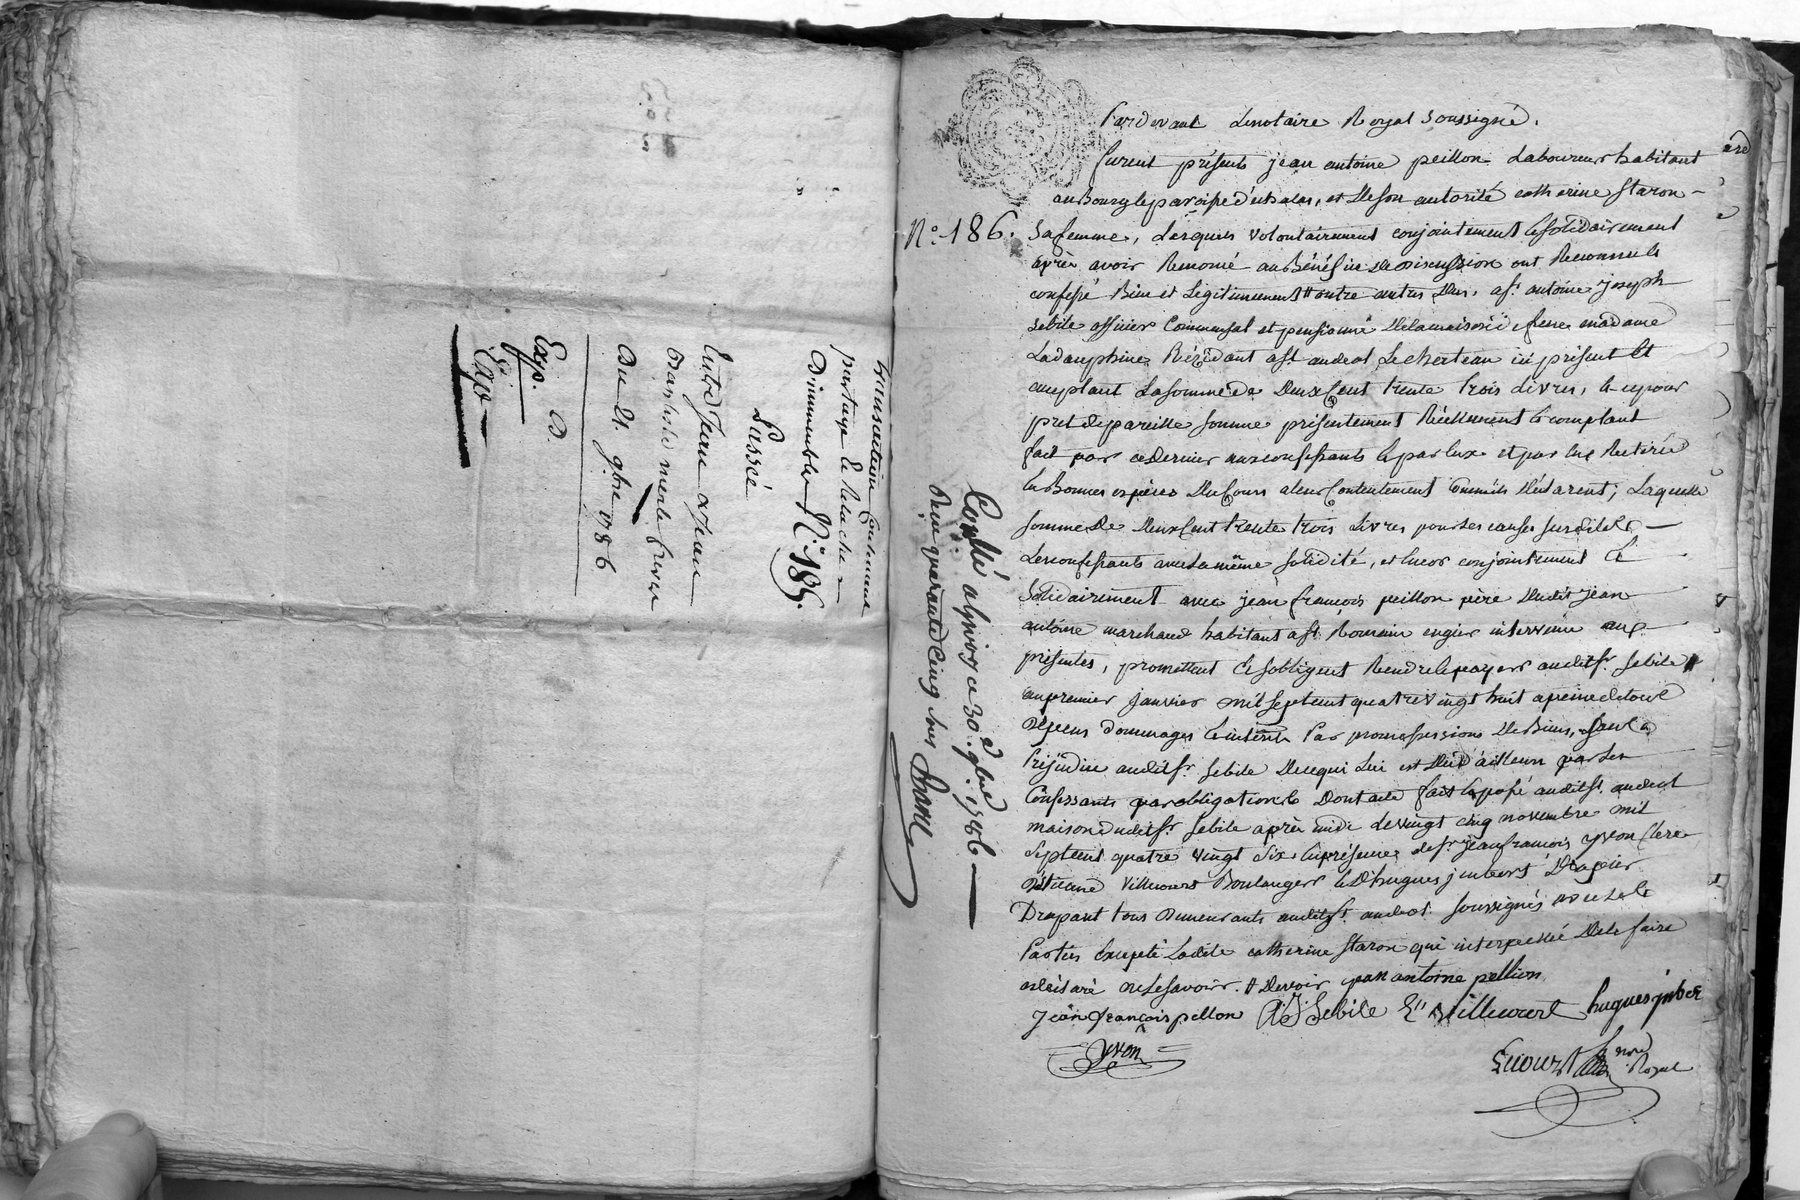 Enumeration Contenant
partage et relache
D'immeuble N.° 185.
Passé
Entre Jean & Jean
Baptiste merle freres
Du 21 9bre 1786
Exp. D
Ex
N.° 186.
Pardevant Lenotaire Royal soussigné.
furent présents jean antoine peillon Laboureur habitant
au Bourg & paroisse d'échalas, et De son autorité catherine staron
sa femme, Lesquels volontairement conjointement & solidairement
après avoir Renoncé au Bénéfice De Discussion ont Reconnu &
confessé Bien et Légitimement # entre autres Dus. a sr. antoine joseph
sebile officier Commensal et pensionné De la maison de feue madame
La dauphine Résidant a st andeol Le chateau ici présent Et
acceptant La somme De Deux Cent trente trois Livres, & ce pour
pret de pareille somme présentement Réellement & comptant
fait par ce Dernier aux confessants & par Eux et par lui Retirée
En Bonnes espèces Du Cours a leur Contentement comme ils Déclarent; Laquelle
somme De Deux Cent trente trois Livres pour Les causes susdites
Les confessants avec La même solidité, et Encor conjointement Et
solidairement avec jean françois peillon père Dudit jean
antoine marchand habitant a st Romain en gier intervenu aux
présentes, promettent & s'obligent Rendre & payer audit sr. sebile #
au premier janvier mil sept cent quatre vingt huit a peine de tous
Dépens dommages & intérêts Par promesses soumissions De Biens, sans
Préjudice audit sr. sebile De ce qui Lui est Dû d'ailleurs par Les
Confessants par obligation & Dont acte fait & passé audit st. andeol
maison dudit sr sebile après midi le vingt cinq novembre mil
sept cent quatre vingt six En présence de sr jean françois yvon clerc
étienne villecourt Boulanger & D'hugues jmbert Drapier
Drapant tous Demeurants audit st. andeol soussignés avec Les
Parties Excepté Ladite catherine staron qui interpellée De le faire
a déclaré ne le savoir. # Devoir jean antoine pellion
jean françois pellon A J Sebile En villecourt hugues jnber
yvon
Lecourt nre Royal
Conllé a givors ce 30. 9bre 1786
Reçu quarante Cinq sous